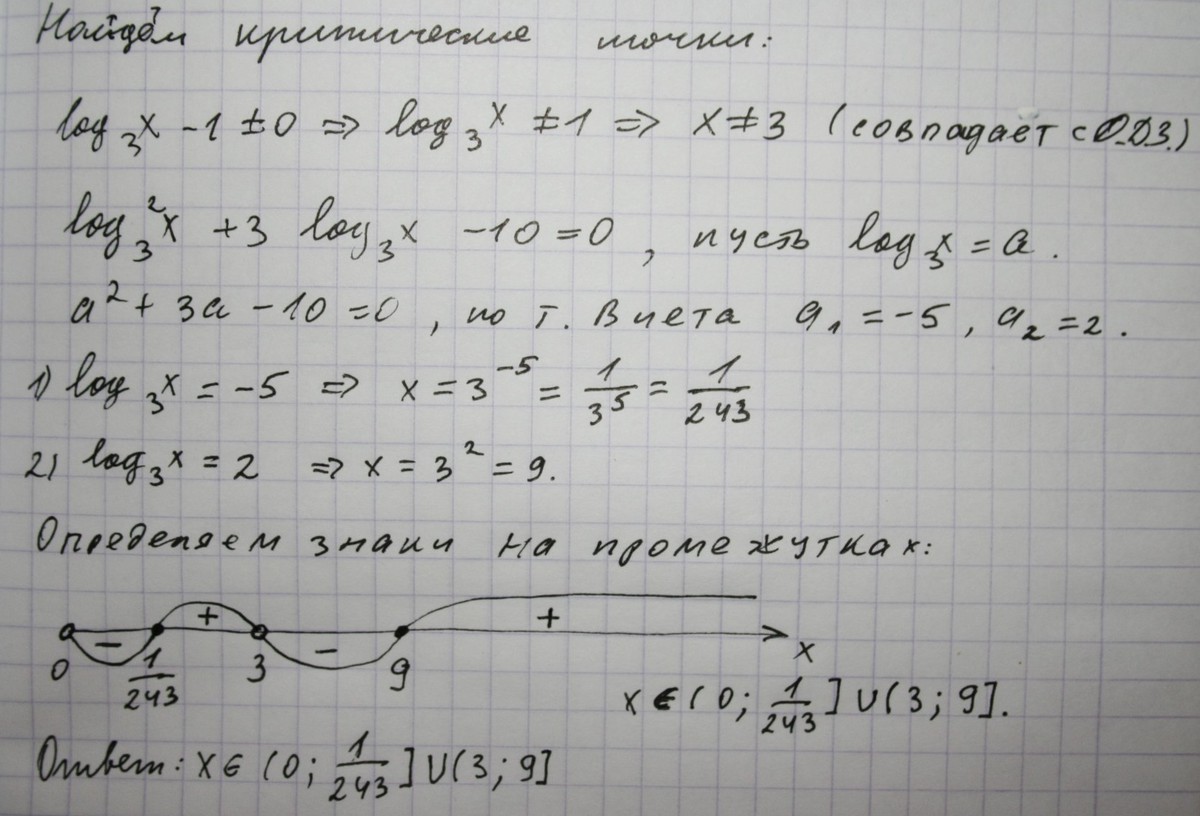 Найдём критические точки:
log₃x - 1 ≠ 0 => log₃x ≠ 1 => x ≠ 3 (совпадает с О.Д.З.)
log₃²x + 3 log₃x - 10 = 0, пусть log₃x = a.
a² + 3a - 10 = 0, по т. Виета a₁ = -5, a₂ = 2.
1) log₃x = -5 => x = 3⁻⁵ = 1/3⁵ = 1/243
2) log₃x = 2 => x = 3² = 9.
Определяем знаки на промежутках:
- + - +
0 1/243 3 9 x
x ∈ (0; 1/243] ∪ (3; 9].
Ответ: x ∈ (0; 1/243] ∪ (3; 9]